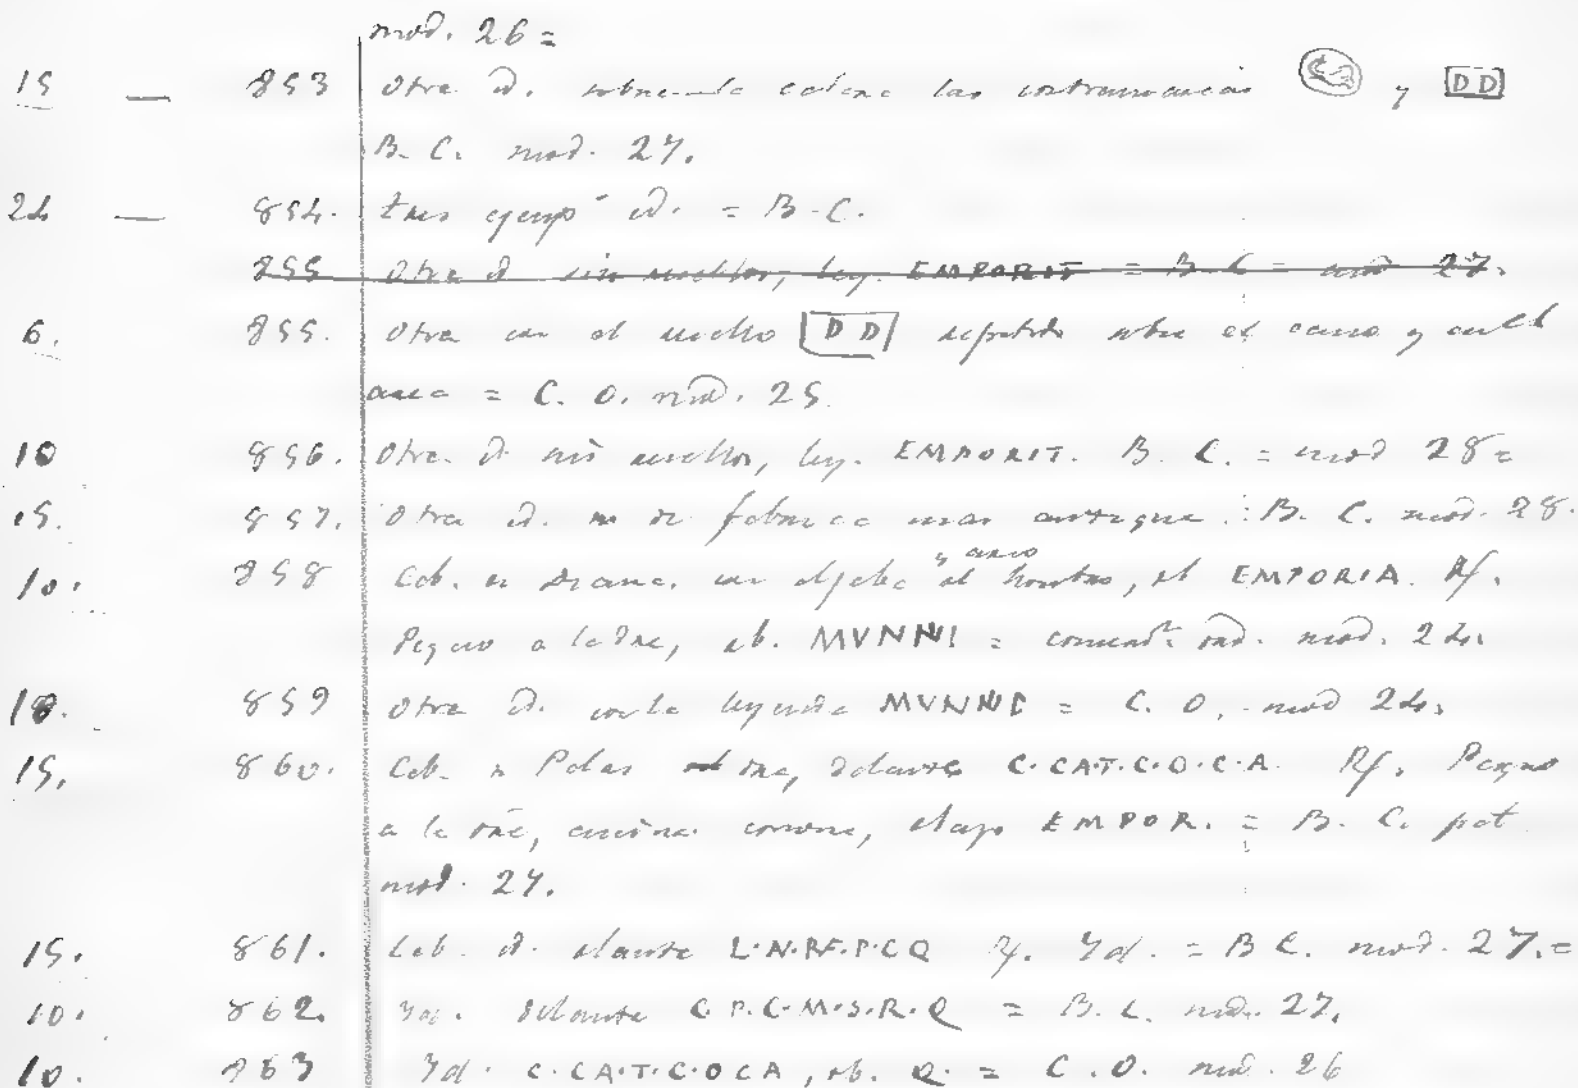 mod. 26 =
15 — 853 Otra id. sobre la cabeza las contramarcas y DD
B. C. mod. 27.
24 — 854. tres ejemp. id. = B. C.
855 Otra id sin resellos, ley. EMPORIT = B. C = mod 27.
6. 855. Otra con el resello DD repetido sobre el casco y en el
anca = C. O. mod. 25
10 856. Otra id. sin resellos, ley. EMPORIT. B. C. = mod 28 =
15. 857. Otra id. de fabrica mas antigua. B. C. mod. 28.
10. 858 Cab. de Diana. con aljaba y arco al hombro, EMPORIA. Rf.
Pegaso a la dra, ab. MVNNI = mod. 24.
18. 859 Otra id. con la leyenda MVNNIC = C. O. mod 24.
15. 860. Cab. de Palas dra, delante C.CA.T.C.O.C.A. Rf. Pegaso
a la dra, encima corona, abajo EMPOR. = B. C. pat
mod. 27.
15. 861. Cab. id. delante L.N.RF.P.C Q Rf. Yd. = B C. mod. 27. =
10. 862. Yd. delante C P.C.M.S.R.Q = B. C. mod. 27.
10. 863 Yd. C.CA.T.C.O CA, Q. = C. O. mod. 26